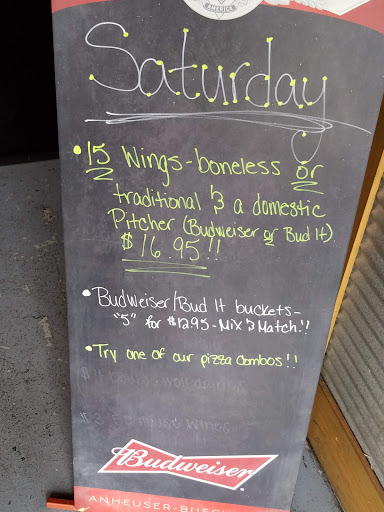 AMERICA
Saturday
• 15 Wings - boneless or
traditional & a domestic
Pitcher (Budweiser or Bud lt)
$16.95!!
• Budweiser/Bud lt buckets -
"5" for $12.95 - Mix & Match!!
• Try one of our pizza combos!!
Budweiser
ANHEUSER-BUSC